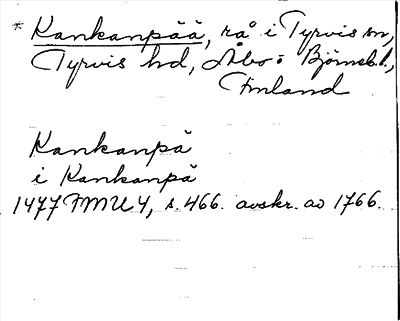 * Kankanpää, rå i Tyrvis sn,
Tyrvis hd, Åbo o Björneb. l.,
Finland
Kankanpä
i Kankanpä
1477 FMU 4, s. 466. avskr. av 1766.